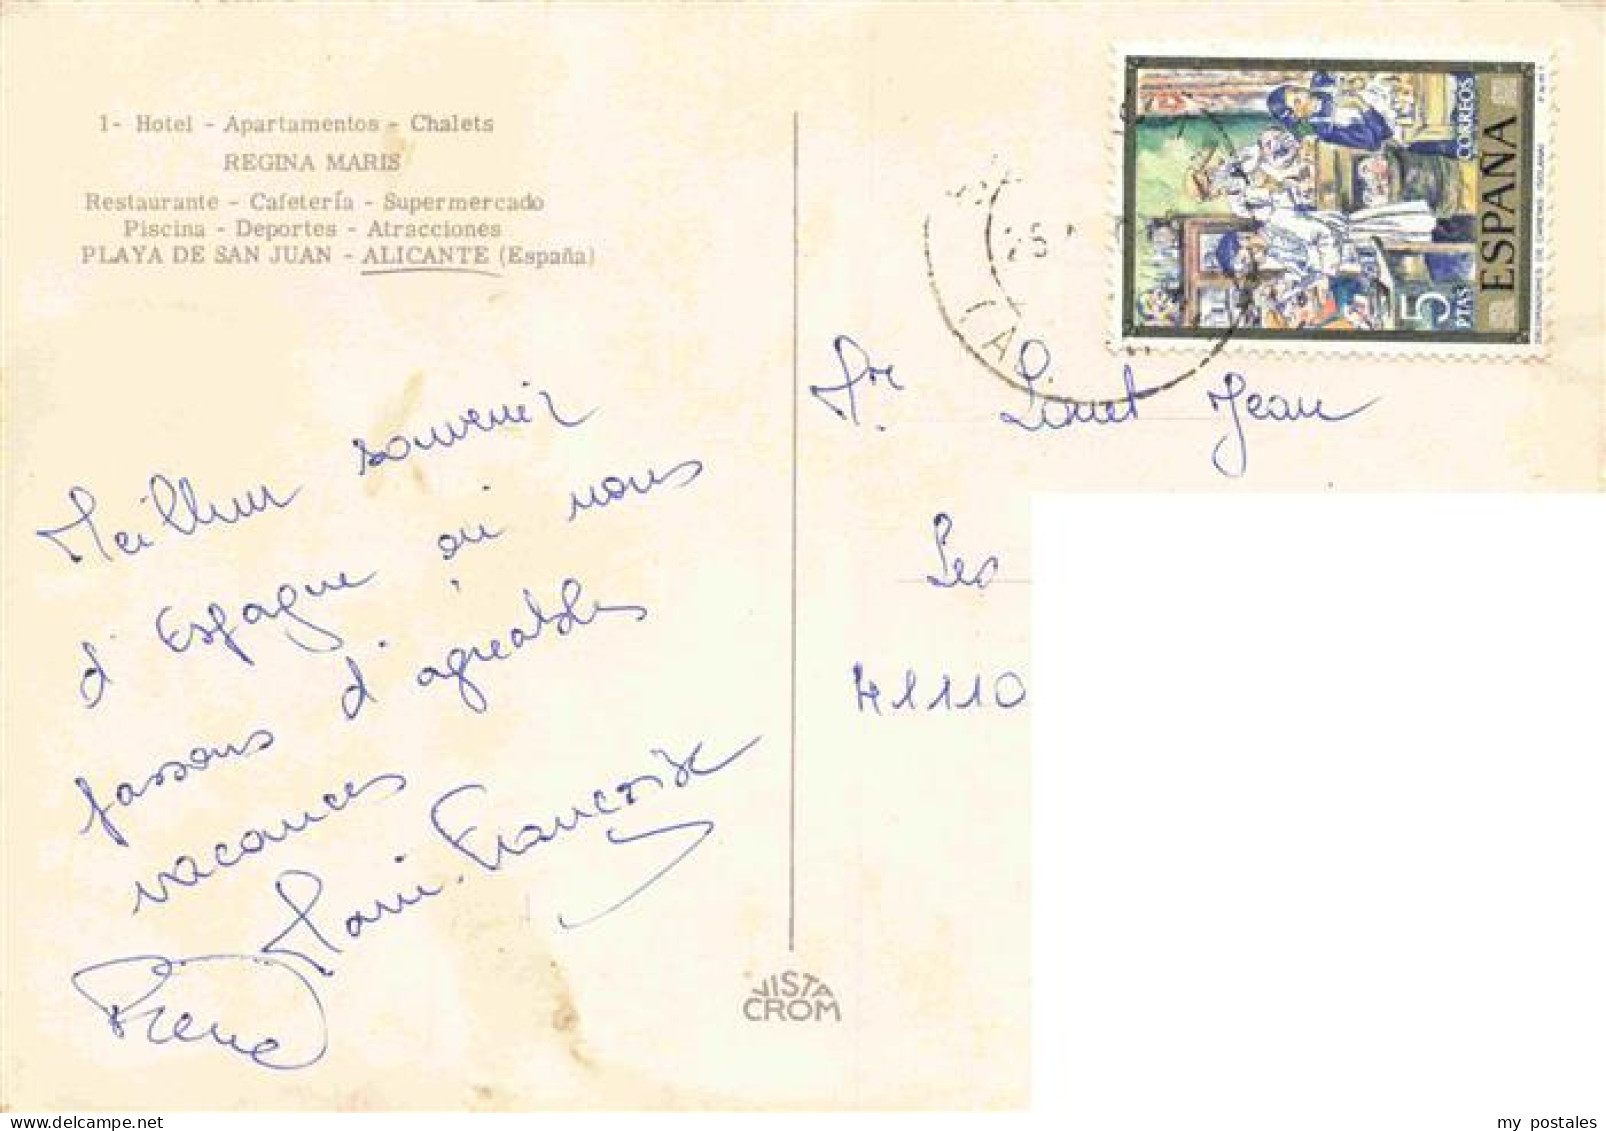 1- Hotel - Apartamentos - Chalets
REGINA MARIS
Restaurante - Cafetería - Supermercado
Piscina - Deportes - Atracciones
PLAYA DE SAN JUAN - ALICANTE (España)
Meilleur souvenir
d'Espagne où nous
passons d'agréables
vacances
Marie-Françoise
ESPAÑA
CORREOS
5 PTAS
Mr Jean
Les
41110
VISTA
CROM
my postales